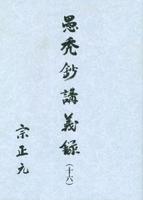 愚禿鈔講義録
(十六)
宗正元